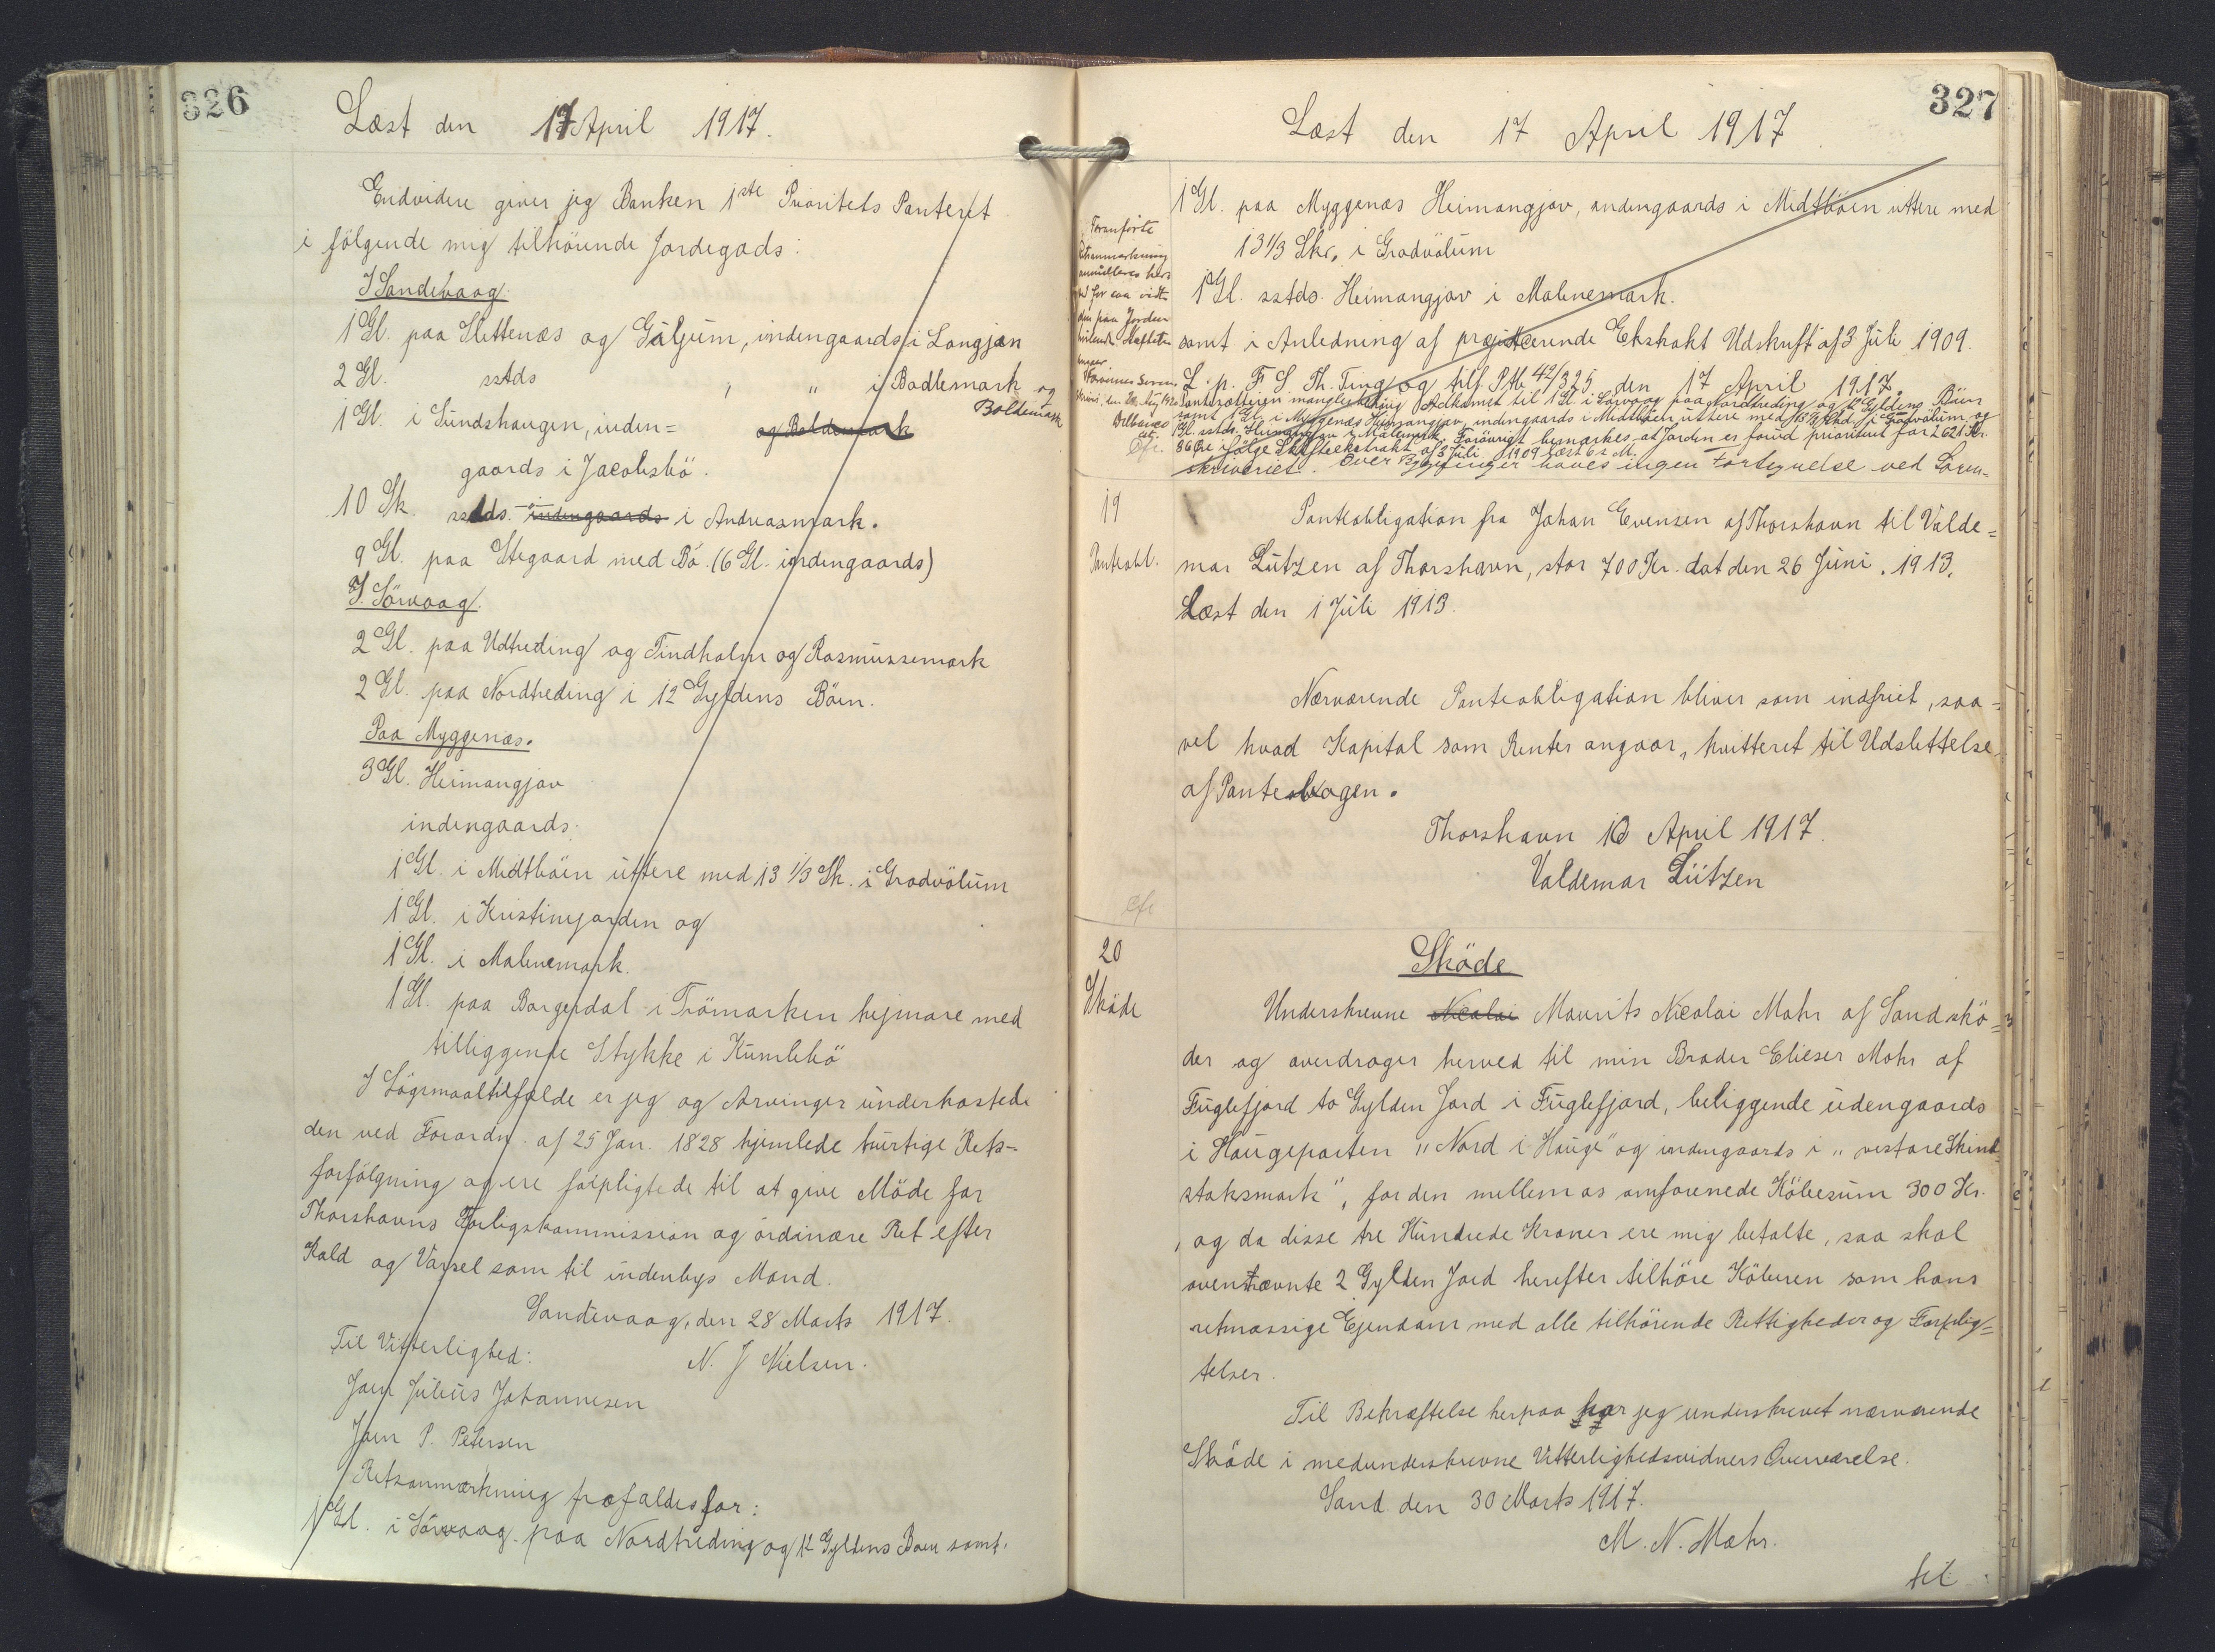 326
Læst den 17 April 1917.
Endvidere giver jeg Banken 1ste Prioritets Panteret
i følgende mig tilhörende Jordegods:
I Sandevaag.
1 Gl. paa Slettenæs og Giljum, indengaards i Langjan
2 Gl. sstds " " i Badlemark og
Boldemark
1 Gl. i Sundshaugen, inden=
og Boldemark
gaards i Jacobsbö.
10 Sk. sstds. indengaards i Andreasmark.
9 Gl. paa Stegaard med Bö. (6 Gl. indengaards)
I Sörvaag.
2 Gl. paa Udtreding og Tindholm og Rasmussemark
2 Gl. paa Nordtreding i 12 Gyldens Böen.
Paa Myggenæs.
3 Gl. Heimangjov
indengaards.
1 Gl. i Midtböen uttere med 13 1/3 Sk. i Gradvölum
1 Gl. i Kristinejorden og
1 Gl. i Malenemark.
1 Gl. paa Borgerdal i Trömarken hejmare med
tilliggende Stykke i Kumlebö
I Lögsmaaltilfælde er jeg og Arvinger underkastede
den ved Forordn. af 25 Jan. 1828 hjemlede hurtige Rets-
forfölgning og ere forpligtede til at give Möde for
Thorshavns Forligskommission og ordinære Ret efter
Kald og Varsel som til indenbys Mand.
Sandevaag, den 28 Marts 1917.
Til Vitterlighed:
N. J Nielsen.
Joen Julius Johannesen
Joen P. Petersen
Retsanmærkning frafaldes for:
1 Gl. i Sörvaag paa Nordtreding og 12 Gyldens Böen samt.
327
Læst den 17 April 1917
1 Gl. paa Myggenæs Heimangjov, indengaards i Midtböen uttere med
13 1/3 Sk. i Gradvölum
1 Gl. sstds. Heimangjov i Malenemark.
samt i Anledning af præjudicerende Ekstrakt Udskrift af 3 Juli 1909.
L. p. F S. Th. Ting og tilf. Ptb. 42/325 den 17 April 1917
Pantsætteren mangler Adkomst til 1 Gl. i Sörvaag paa Nordtreding og 12 Gyldens Böen
samt 1 Gl. i Myggenæs Heimangjov, indengaards i Midtböen uttere med 13 1/3 Sk. i Gradvölum og
1 Gl. sstds. Heimangjov i Malenemark. Forövrigt bemærkes at Jorden er forud prioriteret for 2621 Kr.
86 Öre ifölge Skifteekstrakt af 3 Juli 1909 læst 6 s. M.
Over Bygninger haves ingen Fortegnelse ved Soren-
skriveriet.
Foranførte
Retsanmærkning
annulleres her-
ved for saa vidt
den paa Jorden
hvilende Hæftelser
angaar
Færöernes Soren-
skriveri, den
19
Panteobl.
Panteobligation fra Johan Evensen af Thorshavn til Valde=
mar Lützen af Thorshavn, stor 700 Kr. dat den 26 Juni. 1913.
Læst den 1 Juli 1913.
Nærværende Panteobligation bliver som indfriet, saa=
vel hvad Kapital som Renter angaar, kvitteret til Udslettelse
af Pantebogen.
Thorshavn 16 April 1917.
Valdemar Lützen
20
Sköde
Sköde
Underskrevne Nicolai Mourits Nicolai Mohr af Sand skö=
der og overdrager herved til min Broder Elieser Mohr af
Fuglefjord to Gylden Jord i Fuglefjord, beliggende udengaards
i Haugeparten "Nord i Hauge" og indengaards i "vestare Skind
staksmark", for den mellem os omforenede Köbesum 300 Kr.
, og da disse tre Hundrede Kroner ere mig betalte, saa skal
ovennævnte 2 Gylden Jord herefter tilhöre Köberen som hans
retmæssige Ejendom med alle tilhörende Rettigheder og Forplig=
telser.
Til Bekræftelse herpaa har jeg underskrevet nærværende
Sköde i medunderskrevne Vitterlighedsvidners Overværelse.
Sand den 30 Marts 1917.
M. N. Mohr.
til